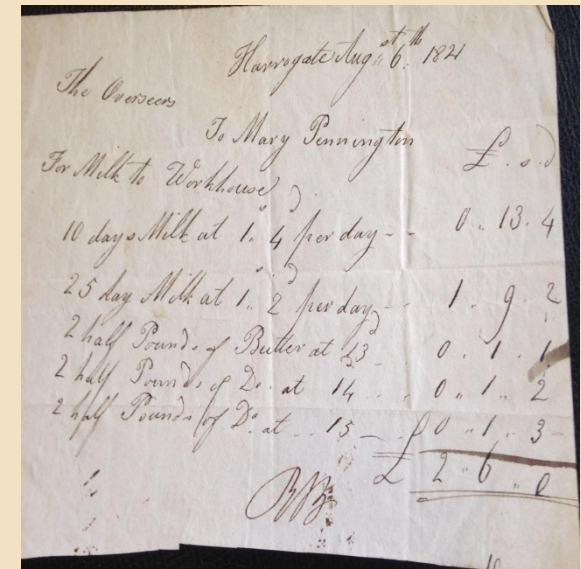 Harrogate Augst 6th 1821
The Overseers
To Mary Pennington
£ . s . d
For Milk to Workhouse
s d
10 days Milk at 1 .. 4 per day - - 0 .. 13 . 4
s d
25 day Milk at 1 .. 2 per day - - 1 . 9 . 2
2 half Pounds of Butter at 13 d 0 . 1 . 1
2 half Pounds of Do. at 14 - - 0 .. 1 .. 2
2 half Pounds of Do. at .. 15 - - 0 .. 1 .. 3
£ 2 .. 6 .. 0